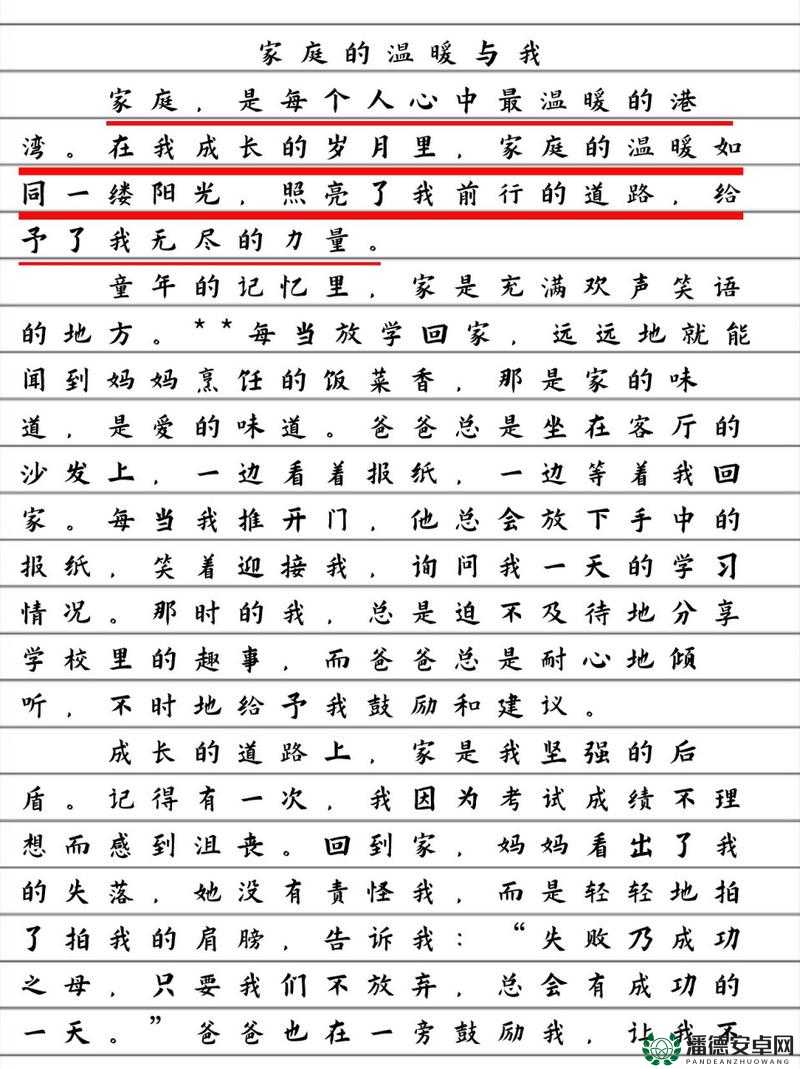 家庭的温暖与我
家庭，是每个人心中最温暖的港
湾。在我成长的岁月里，家庭的温暖如
同一缕阳光，照亮了我前行的道路，给
予了我无尽的力量。
童年的记忆里，家是充满欢声笑语
的地方。**每当放学回家，远远地就能
闻到妈妈烹饪的饭菜香，那是家的味
道，是爱的味道。爸爸总是坐在客厅的
沙发上，一边看着报纸，一边等着我回
家。每当我推开门，他总会放下手中的
报纸，笑着迎接我，询问我一天的学习
情况。那时的我，总是迫不及待地分享
学校里的趣事，而爸爸总是耐心地倾
听，不时地给予我鼓励和建议。
成长的道路上，家是我坚强的后
盾。记得有一次，我因为考试成绩不理
想而感到沮丧。回到家，妈妈看出了我
的失落，她没有责怪我，而是轻轻地拍
了拍我的肩膀，告诉我：“失败乃成功
之母，只要我们不放弃，总会有成功的
一天。”爸爸也在一旁鼓励我，让我不
潘德安卓网
PANDEANZHUOWANG